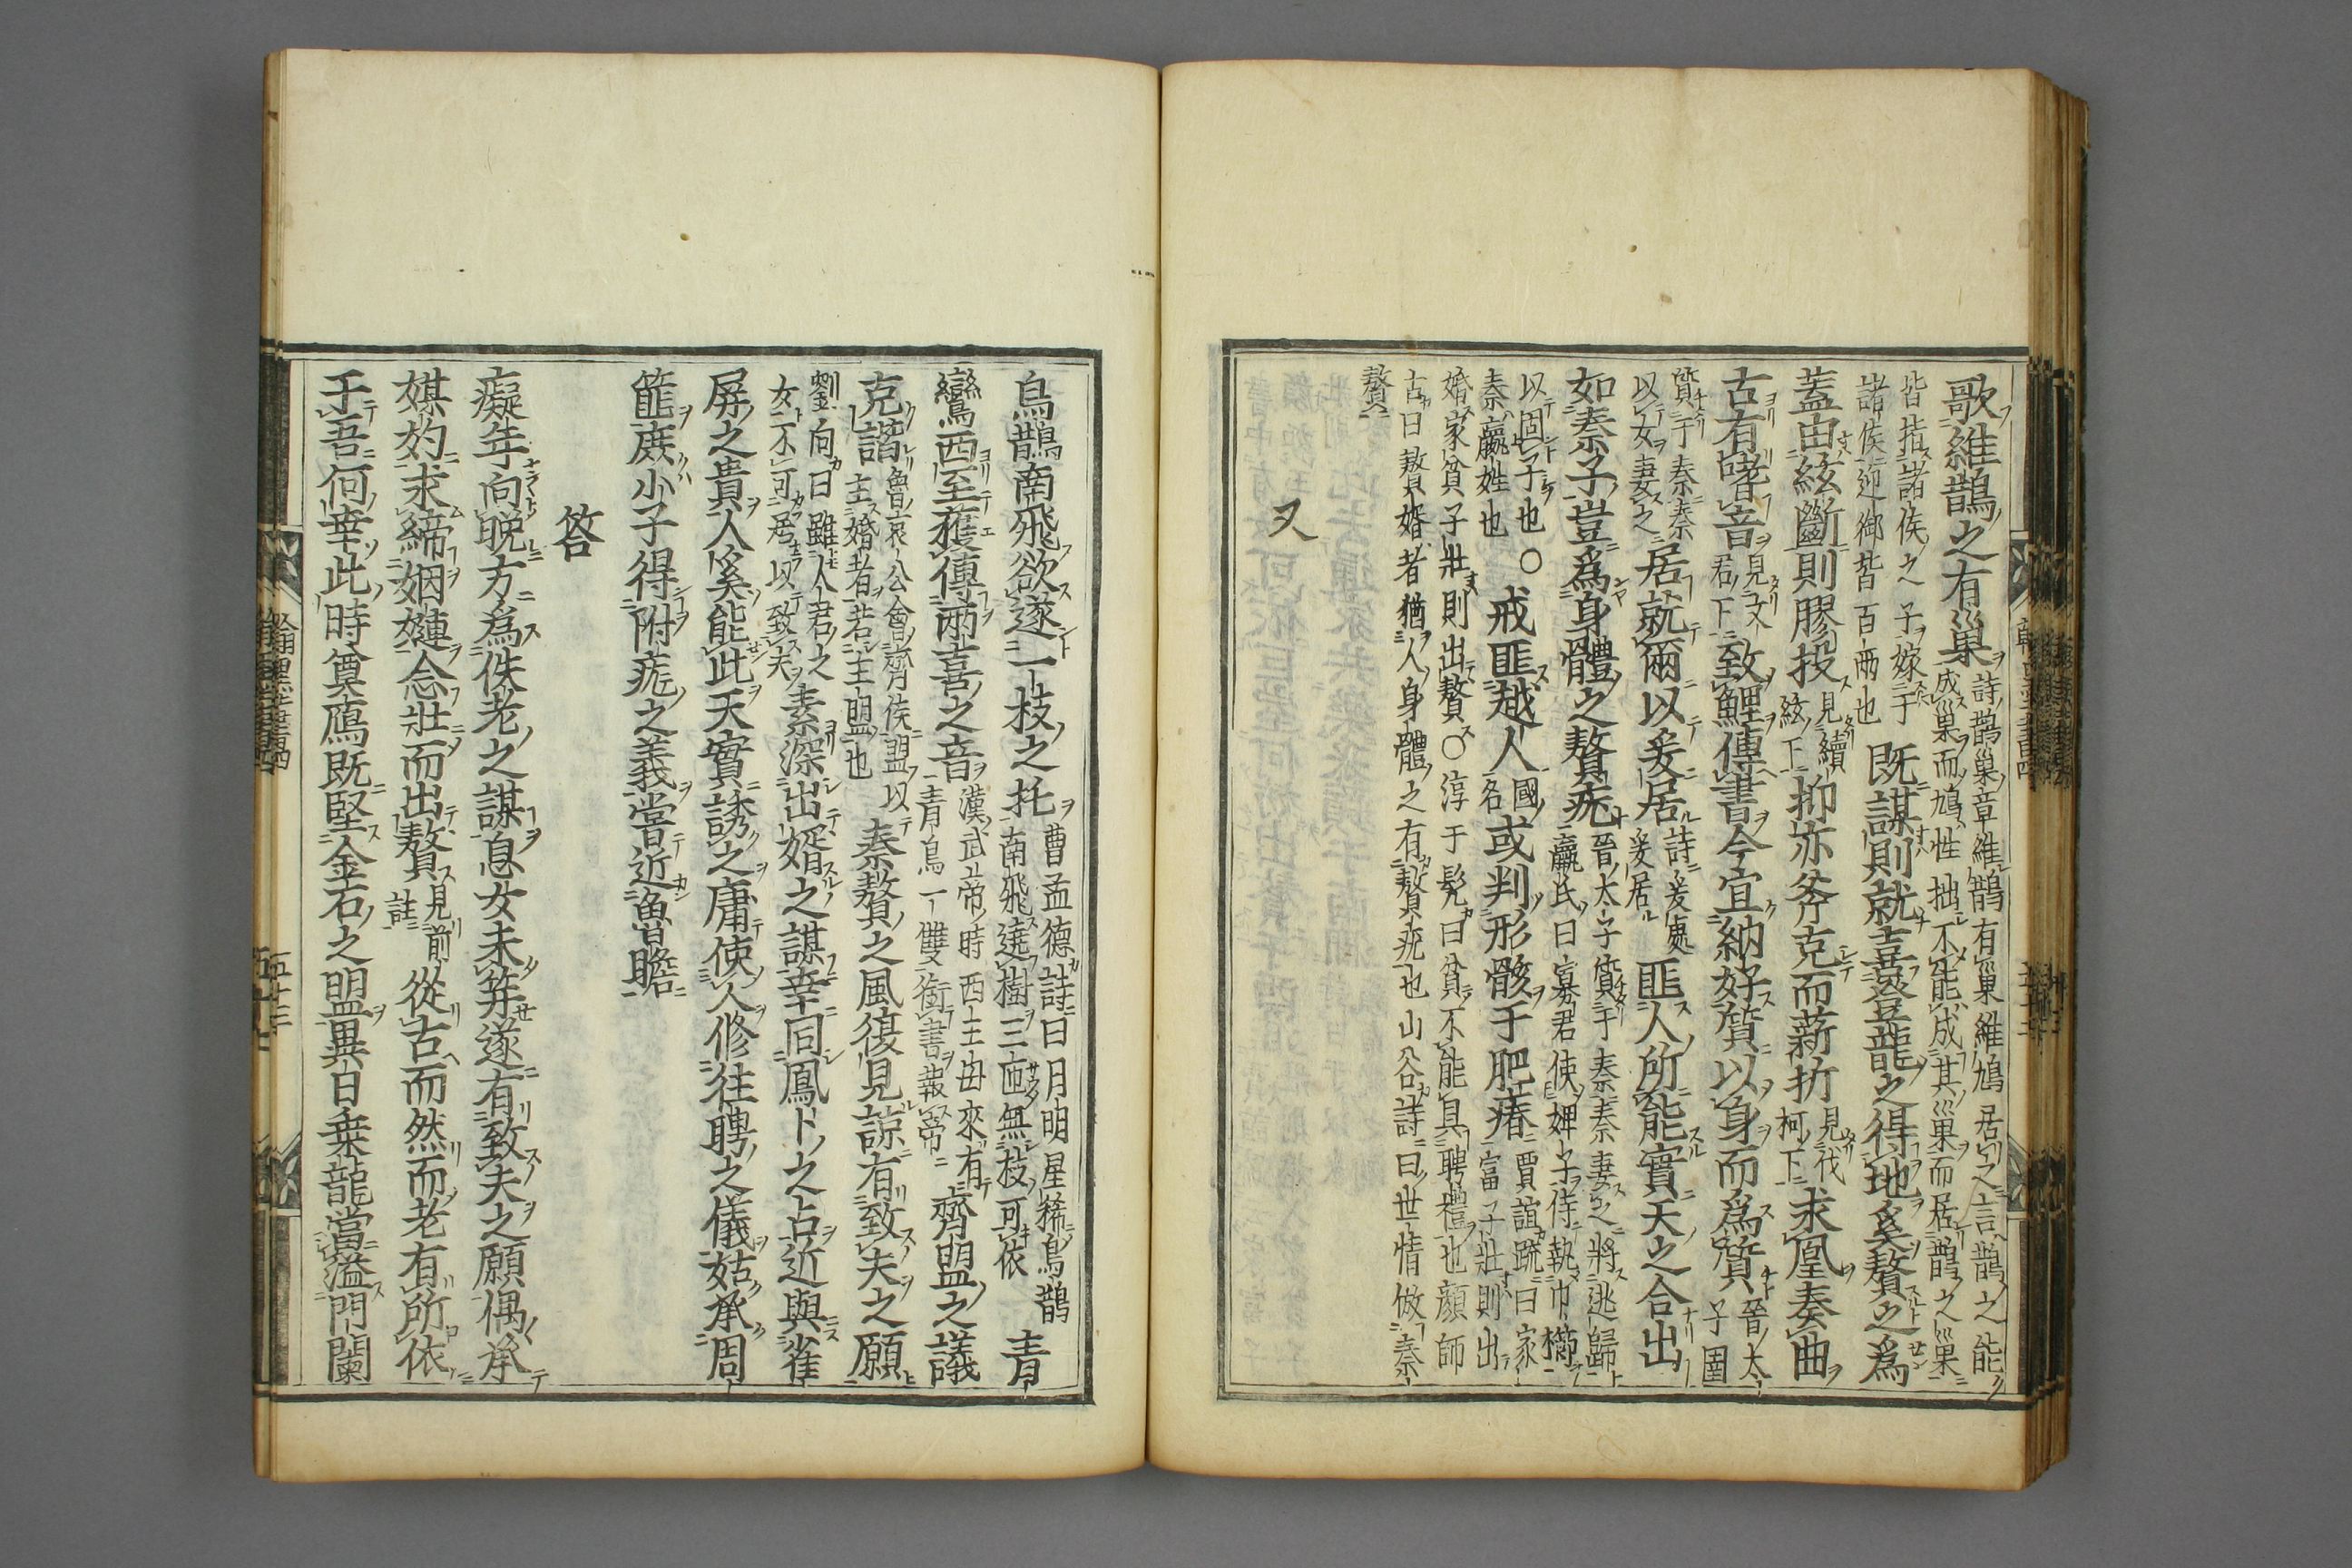 歌維鵲之有巢詩鵲巢章維鵲有巢維鳩居之言鵲之能
成巢而鳩性拙不能成其巢而居鵲之巢
皆指諸侯之子嫁于
諸侯迎御皆百兩也既謀則就喜登龍之得地奚贅之為
蓋由絃斷則膠投見續
絃下抑亦斧克而薪折見伐
柯下求凰奏曲
古有嗜音見文
君下致鯉傳書今宜納好贄以身而為質晉太
子圉
質于秦秦
以女妻之居就爾以爰居詩爰處
爰居匪人所能實天之合出
如秦子豈為身體之贅疣晉太子質于秦秦妻之將逃歸
嬴氏曰寡君使婢子侍執巾櫛
以固子也○
秦嬴姓也戒匪越人國
名或判形骸于肥瘠賈誼疏曰家
富子壯則出
婚家貧子壯則出贅○淳于髡曰貧不能具聘禮也顏師
古曰贅婿者猶人身體之有贅疣也山谷詩曰世情倣秦
贅
又
烏鵲南飛欲遂一枝之托曹孟德詩曰月明星稀烏鵲
南飛遶樹三匝無枝可依青
鸞西至獲傳兩喜之音漢武帝時西王母來有
青鳥一雙銜書報帝齊盟之議
克諧魯哀公會齊侯盟以
主婚者若主盟也秦贅之風復見諒有致夫之願
劉向曰雖人君之
女不可居以致夫素深出婿之謀幸同鳳卜之占近與雀
屏之貴人奚能此天實誘之庸使人修往聘之儀姑承周
篚庶小子得附疣之義嘗近魯瞻
答
癡年向晚方為佚老之謀息女未笄遂有致夫之願偶承
媒妁求締姻嫿念壯而出贅見前
註從古而然而老有所依
于吾何幸此時奠鴈既堅金石之盟異日乗龍當溢門闌
翰墨全書四
五十三